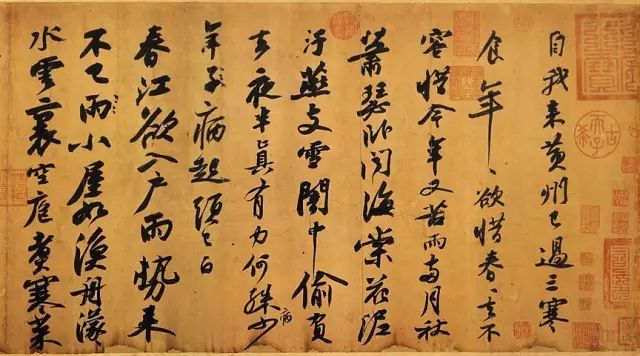 自我来黄州已過三寒
食年〻欲惜春〻去不
容惜今年又苦雨兩月秋
蕭瑟卧聞海棠花泥
汙燕支雪闇中偷負
去夜半真有力何殊少
病
年子病起須已白
春江欲入户雨勢来
不已雨小屋如漁舟濛〻
水雲裏空庖煮寒菜
古希天子